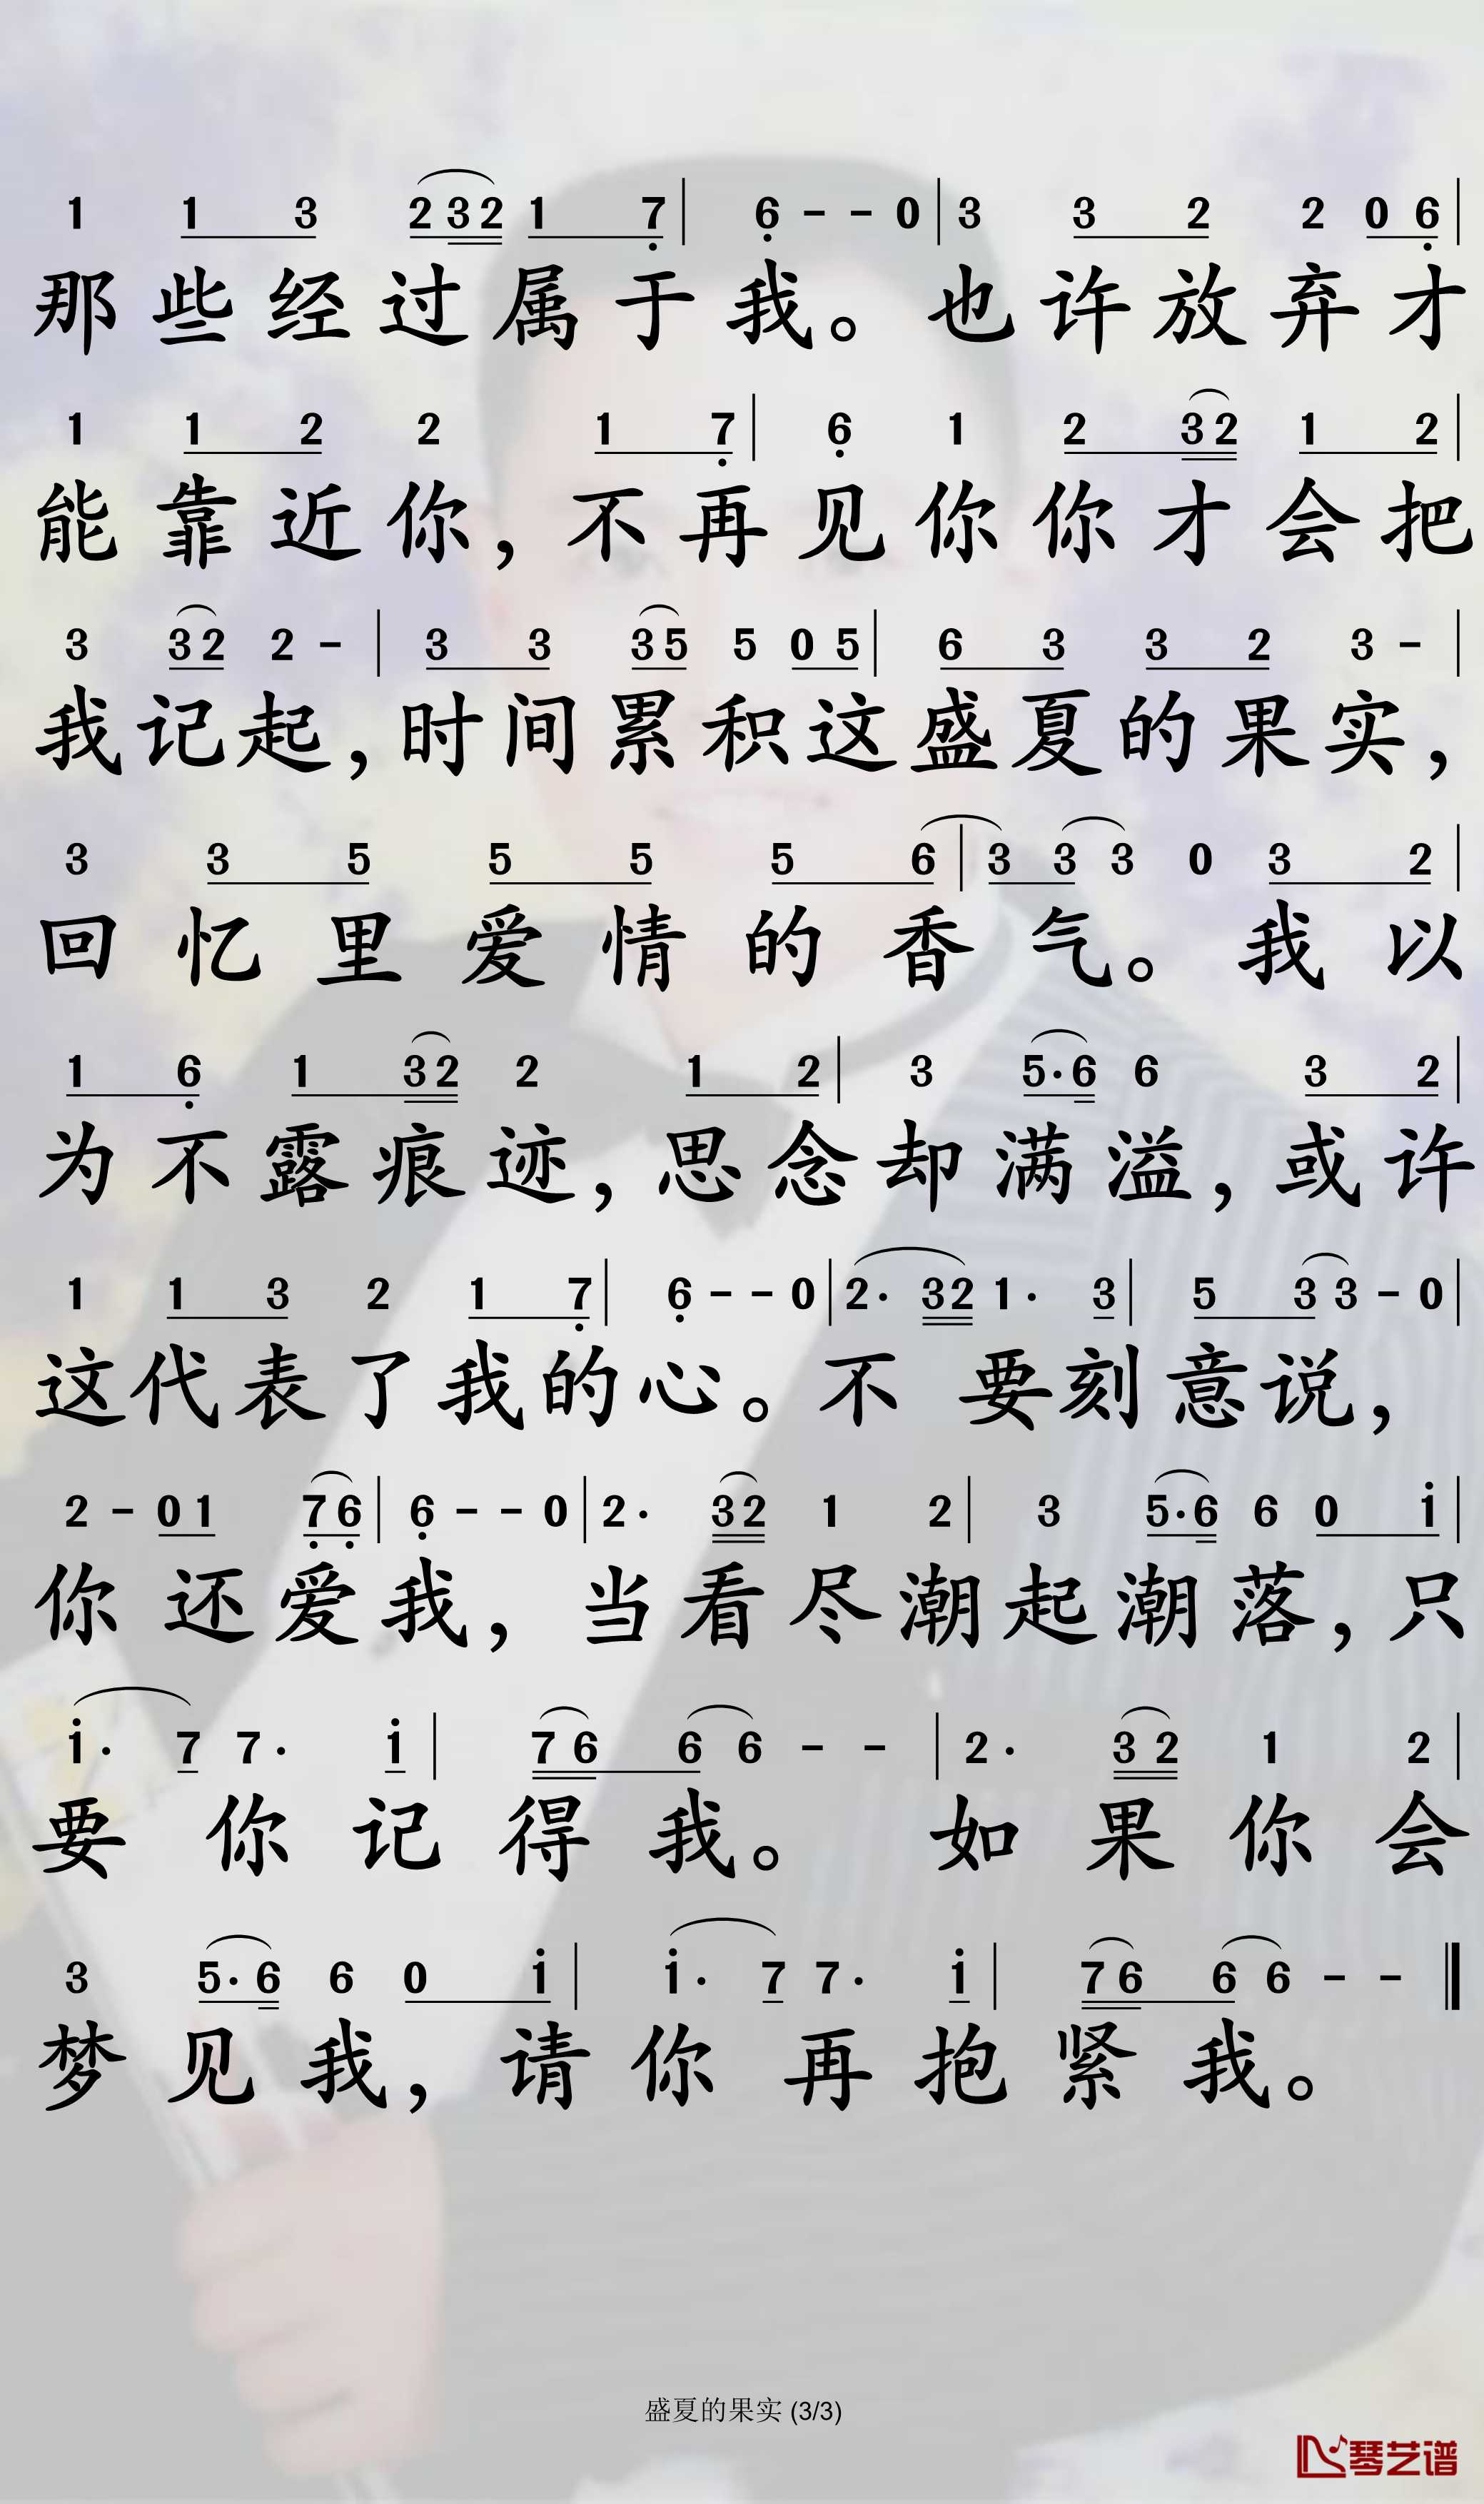 1 1 3 2 3 2 1 7 | 6 - - 0 | 3 3 2 2 0 6 |
那些经过属于我。也许放弃才
1 1 2 2 1 7 | 6 1 2 3 2 1 2 |
能靠近你，不再见你你才会把
3 3 2 2 - | 3 3 3 5 5 0 5 | 6 3 3 2 3 - |
我记起，时间累积这盛夏的果实，
3 3 5 5 5 5 6 | 3 3 3 0 3 2 |
回忆里爱情的香气。我以
1 6 1 3 2 2 1 2 | 3 5· 6 6 3 2 |
为不露痕迹，思念却满溢，或许
1 1 3 2 1 7 | 6 - - 0 | 2· 3 2 1· 3 | 5 3 3 - 0 |
这代表了我的心。不要刻意说，
2 - 0 1 7 6 | 6 - - 0 | 2· 3 2 1 2 | 3 5· 6 6 0 i |
你还爱我，当看尽潮起潮落，只
i· 7 7· i | 7 6 6 6 - - | 2· 3 2 1 2 |
要你记得我。如果你会
3 5· 6 6 0 i | i· 7 7· i | 7 6 6 6 - - ‖
梦见我，请你再抱紧我。
盛夏的果实 (3/3)
琴艺谱